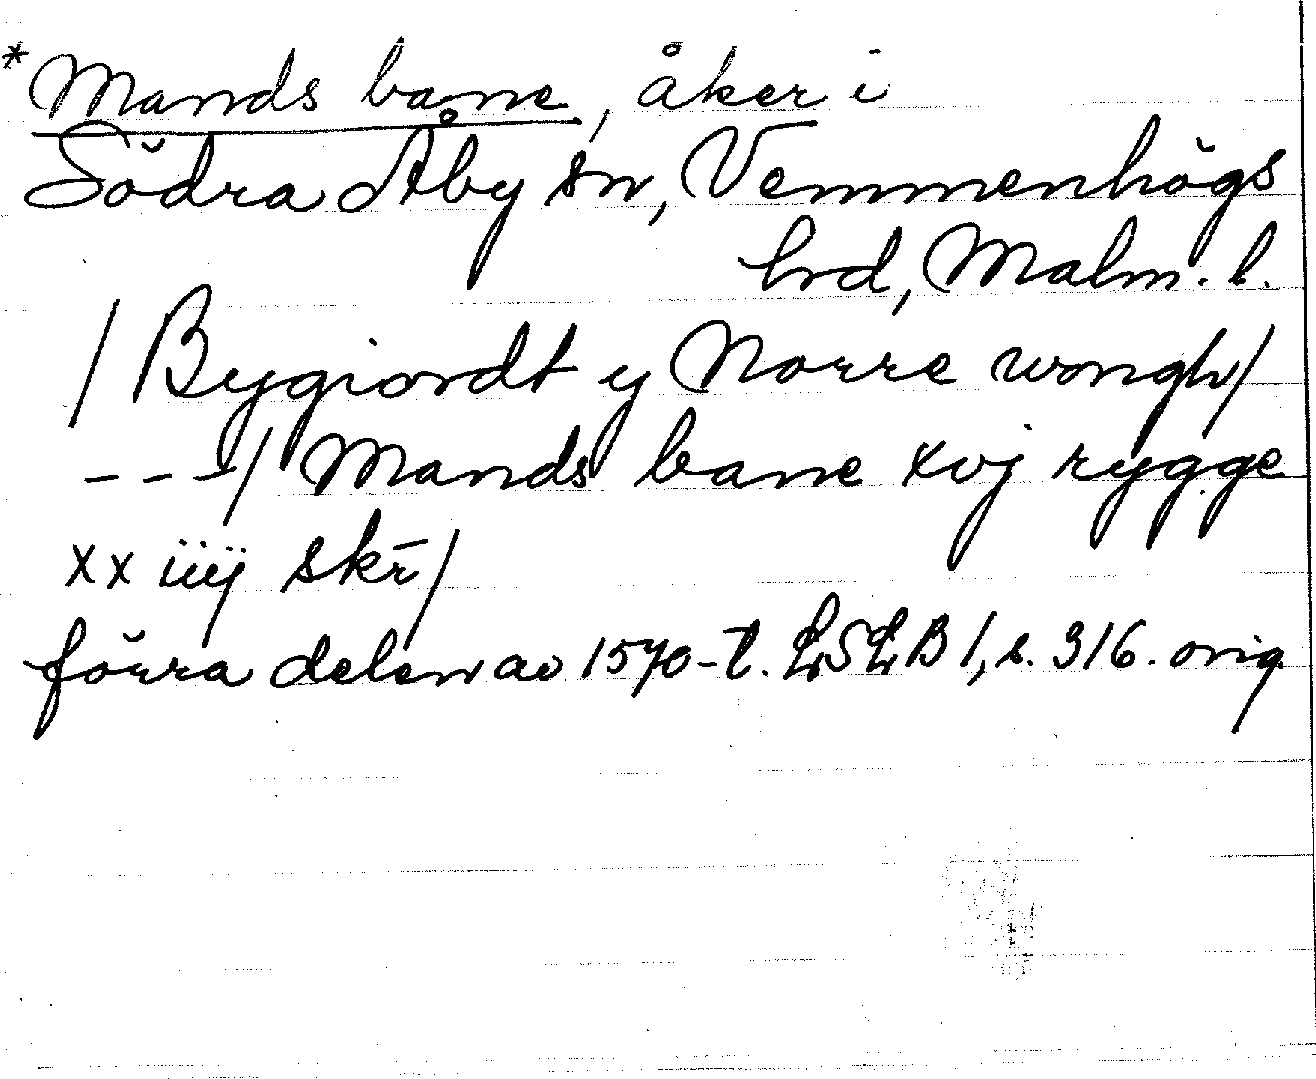 *Mands bane, åker i
Södra Åby sn, Vemmenhögs
hrd, Malm. l.
/ Bygiordt y Norre wongh/
---/ Mands bane xvj rygge
xx iiij skr̄/
förra delen av 1570-t. LSLB 1, s. 316. orig